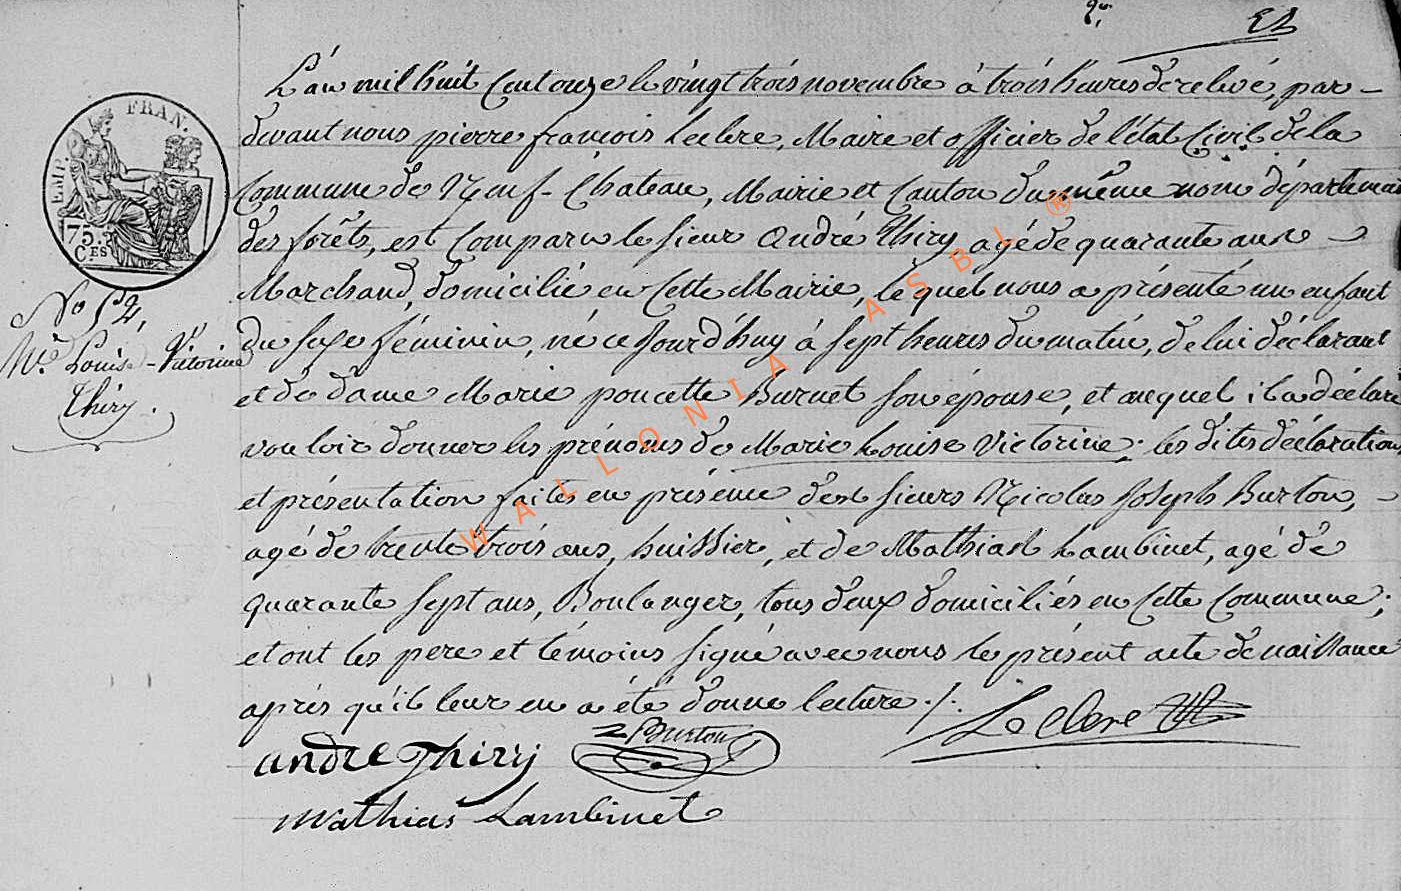 EMP. FRAN.
75.
CES
No 52,
Me Louise-Victorine
Thiry.
L'an mil huit Cent onze le vingt trois novembre à trois heures de relevé, par-
devant nous pierre françois Leclere, Maire et officier de l'état Civil de la
Commune de Neuf-Château, Mairie et Canton du même nom département
des forêts, est Comparu le sieur André Thiry agé de quarante ans
Marchand, domicilié en Cette Mairie, lequel nous a présenté un enfant
du sexe féminin, né ce Jourd'huy à sept heures du matin, de lui déclarant
et de dame Marie poncette Burnet son épouse, et auquel il a déclaré
vouloir donner les prénoms de Marie Louise Victorine; les dites déclaration
et présentation faites en présence des sieurs Nicolas Joseph Burton,
agé de trente trois ans, huissier, et de Mathias Lambinet, agé de
quarante sept ans, Boulanger, tous deux domiciliés en Cette Commune;
et ont les pere et témoins signé avec nous le présent acte de naissance
après qu'il leur en a été donné lecture ./.
Leclere
andre Thiry
Burton
mathias Lambinet
WALLONIA ASBL ®